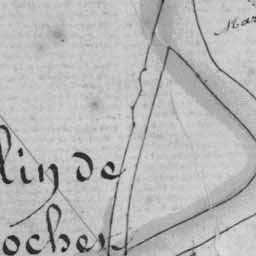 Mar
lin de
ocher